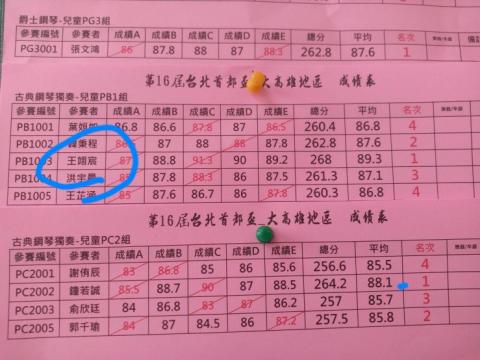 爵士鋼琴-兒童PG3組
參賽編號 參賽者 成績A 成績B 成績C 成績D 成績E 總分 平均 名次
PG3001 張文鴻 86 87.8 88 87 88.3 262.8 87.6 1
第16屆台北首都盃 大高雄地區 成績表
古典鋼琴獨奏-兒童PB1組
參賽編號 參賽者 成績A 成績B 成績C 成績D 成績E 總分 平均 名次
PB1001 86.8 86.6 87.8 87 86.5 260.4 86.8 4
PB1002 秉程 87 88 88 87.8 262.8 87.6 2
PB1003 王翊宸 87 88.8 91.3 90 89.2 268 89.3 1
PB1004 洪宇 87.8 88.3 86 87.5 261.3 87.1 3
PB1005 王芷涵 85 87.6 86.7 86 87.8 260.3 86.8 4
第16屆台北首都盃 大高雄地區 成績表
古典鋼琴獨奏-兒童PC2組
參賽編號 參賽者 成績A 成績B 成績C 成績D 成績E 總分 平均 名次
PC2001 謝侑辰 83 86.8 85 86 85.6 256.6 85.5 4
PC2002 鍾若誠 85.5 88.7 90 87 88.5 264.2 88.1 1
PC2003 俞欣廷 84 86.8 83 87 86.2 257 85.7 3
PC2005 郭千瑜 84 87 84.5 86 87.2 257.5 85.8 2